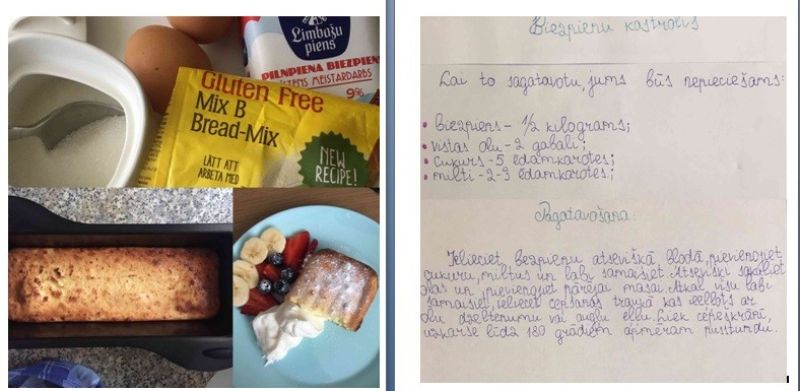 Limbažu
piens
PILNPIENA BIEZPIENS
MEISTARDARBS
9%
Gluten Free
Mix B
Bread-Mix
LÄTT ATT
ARBETA MED
NEW
RECIPE!
Biezpienu kastrolis
Lai to sagatavotu, jums būs nepieciešams:
• Biezpiens - 1/2 kilograms;
• vistas olu - 2 gabali;
• cukurs - 5 ēdamkarotes;
• milti - 2-3 ēdamkarotes;
Pagatavošana
Ielieciet biezpienu atsevišķā blodā, pievienojiet
cukuru, miltus un labi samaisiet. Atsevišķi
olas un, pievienojiet pārējai masai. Atkal visu labi
samaisiet, ielieciet cepšanas traukā kas ieeļļots ar
olu dzeltenumu vai augļu eļļu. Liek cepeškrāsnī,
uzkarsē līdz 180 grādiem apmēram pusstundu.